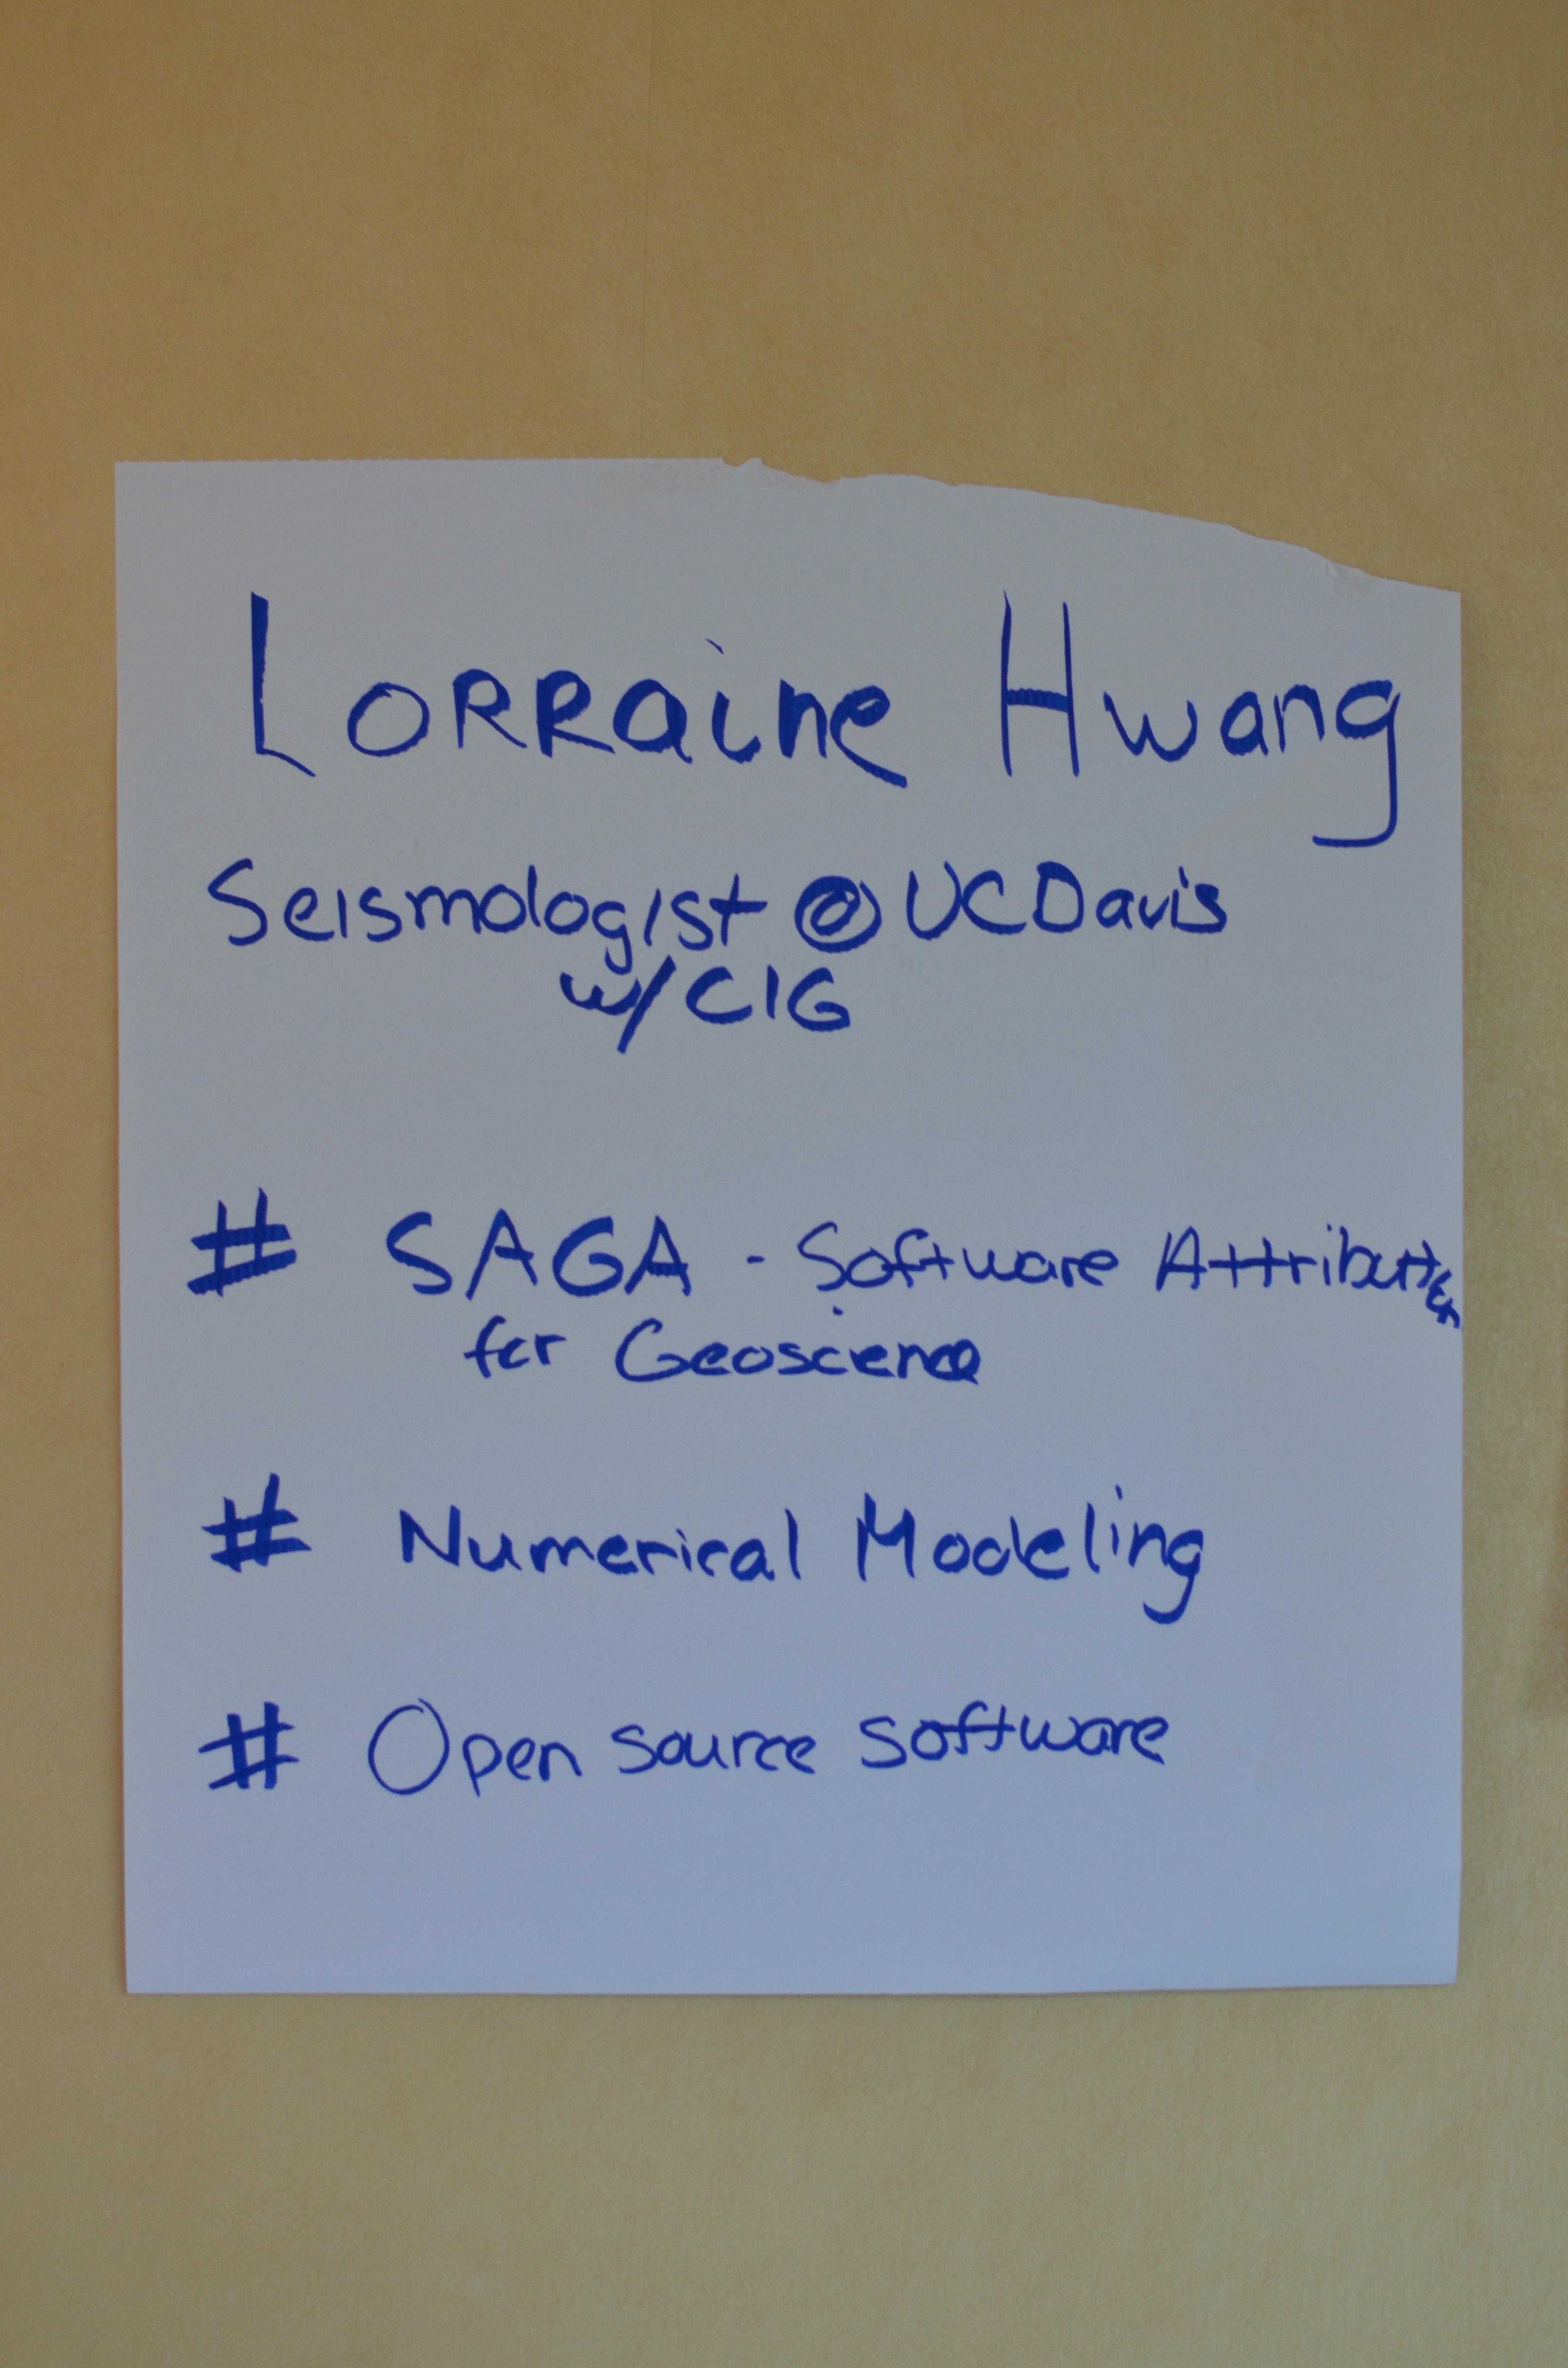 Lorraine Hwang
Seismologist @ UC Davis
w/ CIG
# SAGA - Software Attribution
for Geoscience
# Numerical Modeling
# Open source software